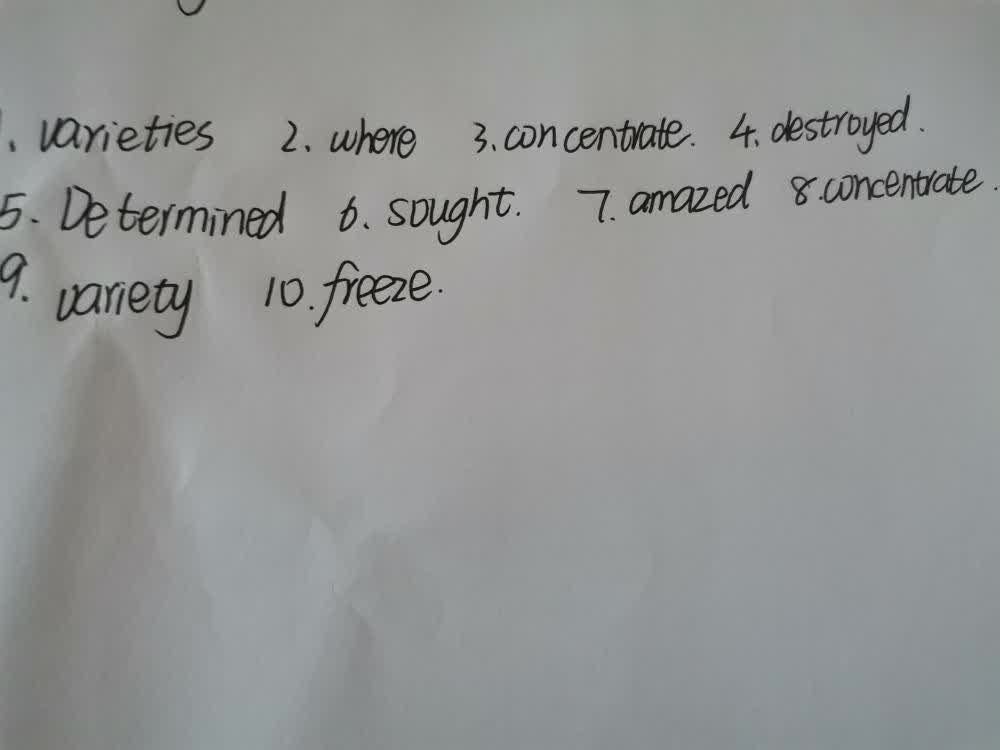 1. varieties 2. where 3. concentrate. 4. destroyed.
5. Determined 6. sought. 7. amazed 8. concentrate.
9. variety 10. freeze.